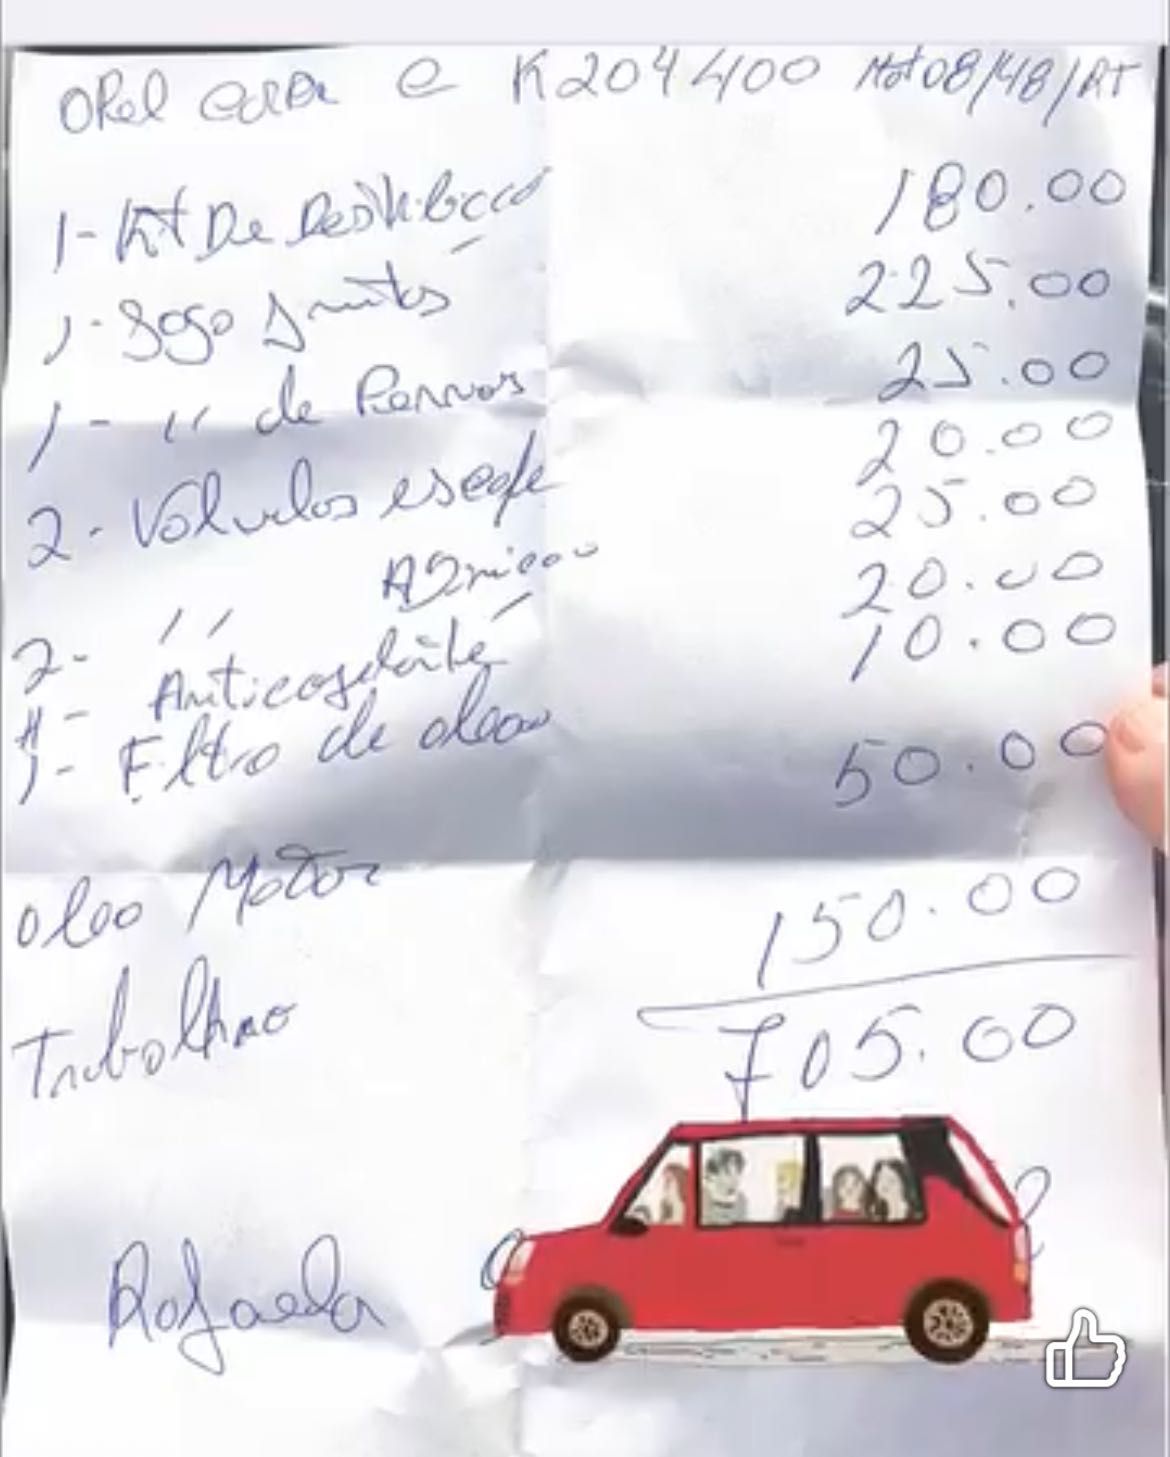 Opel corsa c K204400 Mat 08/48/RT
1- Kit De Destribicao 180.00
1- Jogo Juntas 225.00
1- " de Pernos 25.00
2- Valvulas escape 20.00
2- " 25.00
4- Anticogelante 20.00
1- Filtro de oleo 10.00
oleo Motor 50.00
Trabalho 150.00
705.00
Rafaela